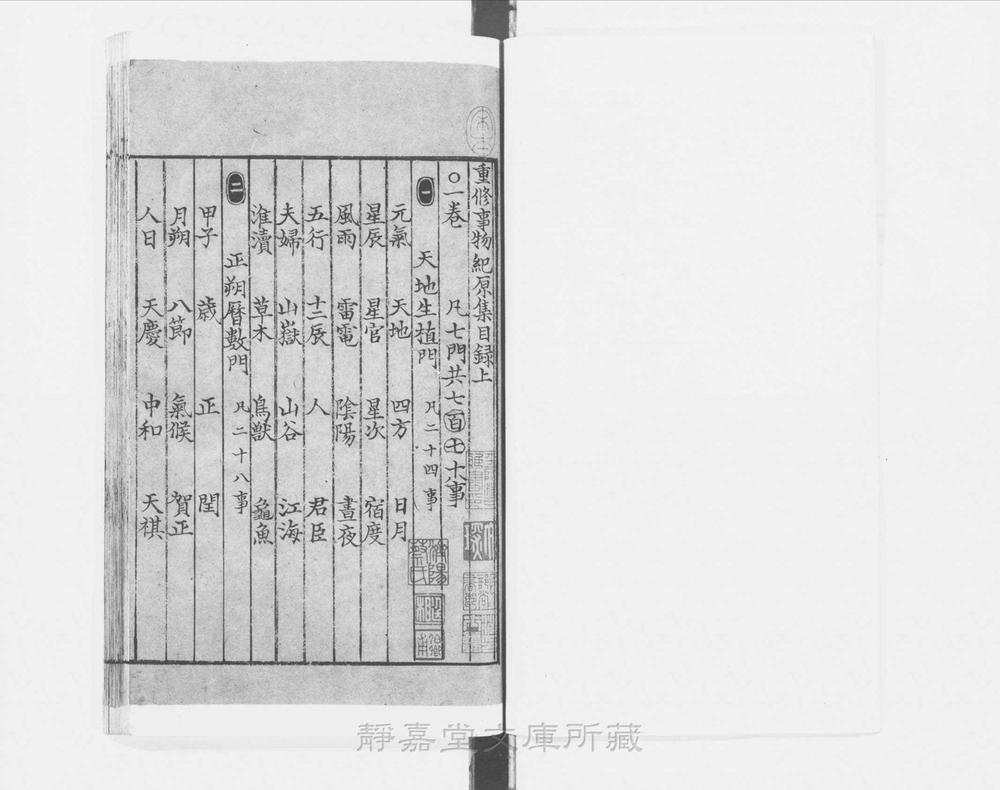 重修事物紀原集目録上
○一巻 凡七門共七百七十事
一 天地生植門 凡二十四事
元氣 天地 四方 日月
星辰 星官 星次 宿度
風雨 雷電 陰陽 晝夜
五行 十二辰 人 君臣
夫婦 山嶽 山谷 江海
淮瀆 草木 鳥獸 龜魚
二 正朔曆數門 凡二十八事
甲子 歲 正 閏
月朔 八節 氣候 賀正
人日 天慶 中和 天祺
濟陽蔡氏
靜嘉堂文庫所藏